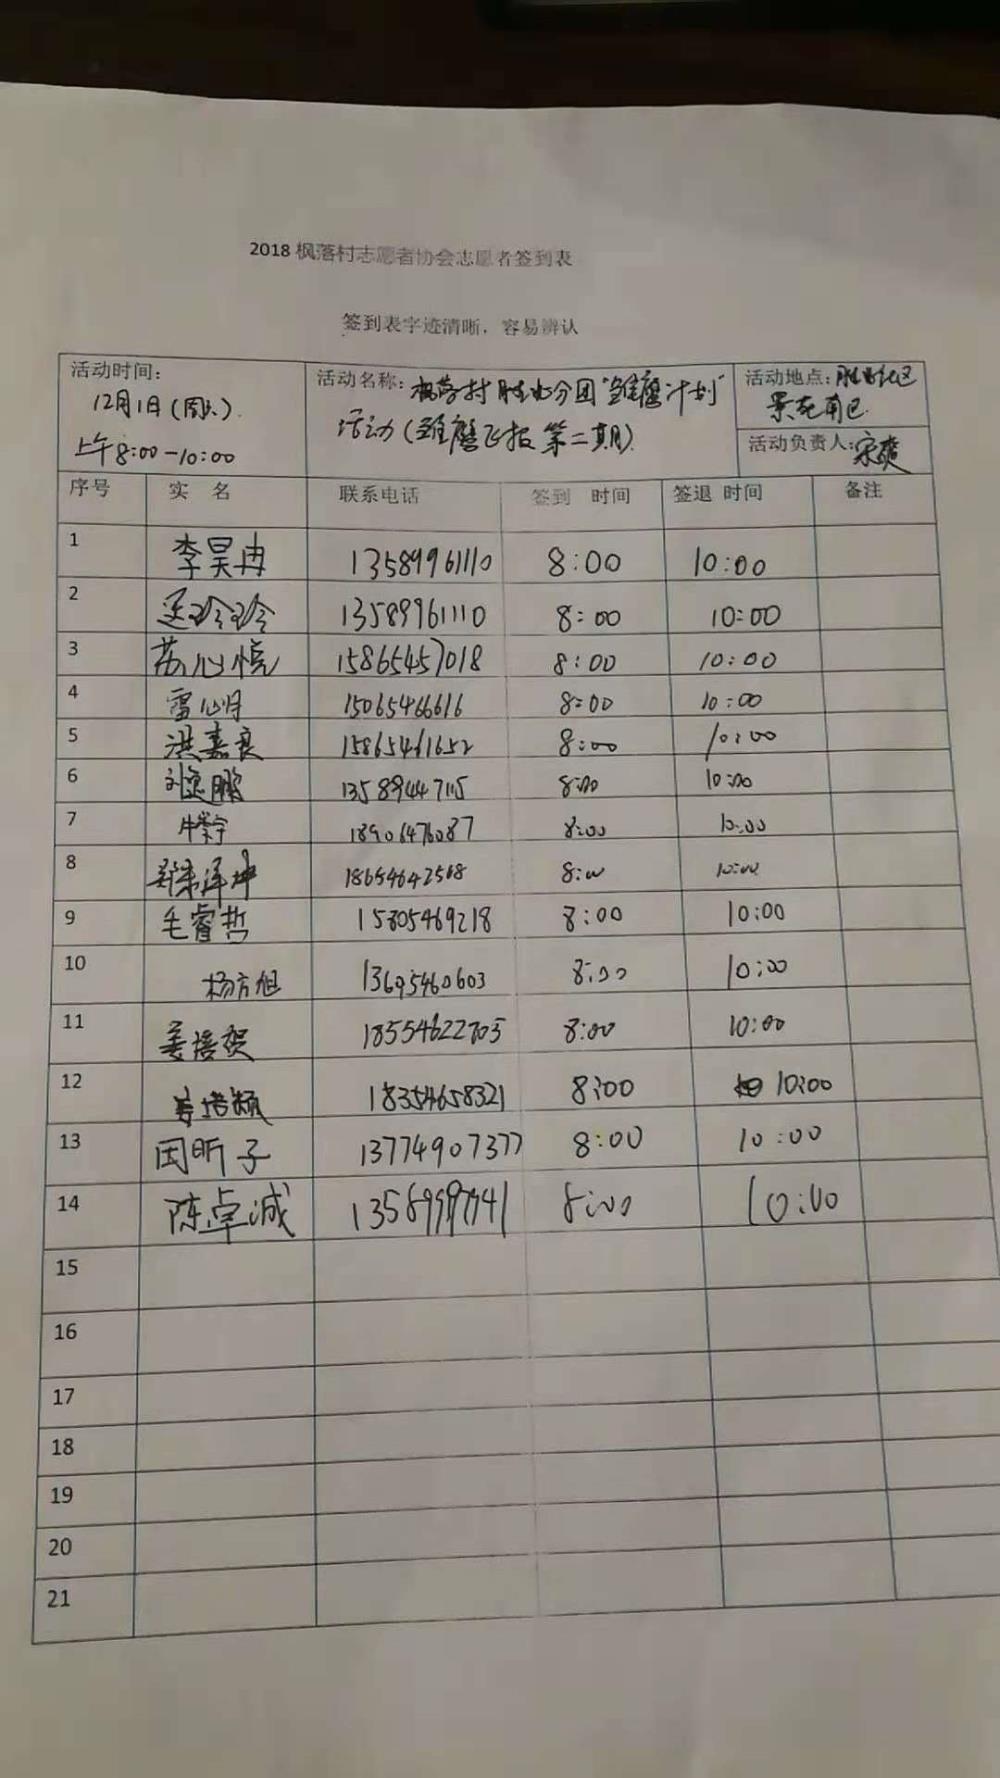 2018 枫落村志愿者协会志愿者签到表
签到表字迹清晰，容易辨认
活动时间： 活动名称：枫落村胜利分团"雏鹰计划" 活动地点：
12月1日(周六) 活动(雏鹰飞报 第二期) 景苑南区
上午8:00-10:00 活动负责人:宋爽
序号 实 名 联系电话 签到 时间 签退 时间 备注
1 李昊冉 13589961110 8:00 10:00
2 玲玲 13589961110 8:00 10:00
3 苏心悦 15865457018 8:00 10:00
4 雷心月 15065466616 8:00 10:00
5 洪嘉良 15865461652 8:00 10:00
6 刘逸鹏 13589447115 8:00 10:00
7 牛宇 18906476087 8:00 10:00
8 郑泽坤 18654642568 8:00 10:00
9 毛睿哲 15805469218 8:00 10:00
10 杨方旭 13695460603 8:00 10:00
11 姜培贺 18554622705 8:00 10:00
12 姜培颖 18354658321 8:00 10:00
13 国昕子 13774907377 8:00 10:00
14 陈卓诚 8:00 10:00
15
16
17
18
19
20
21